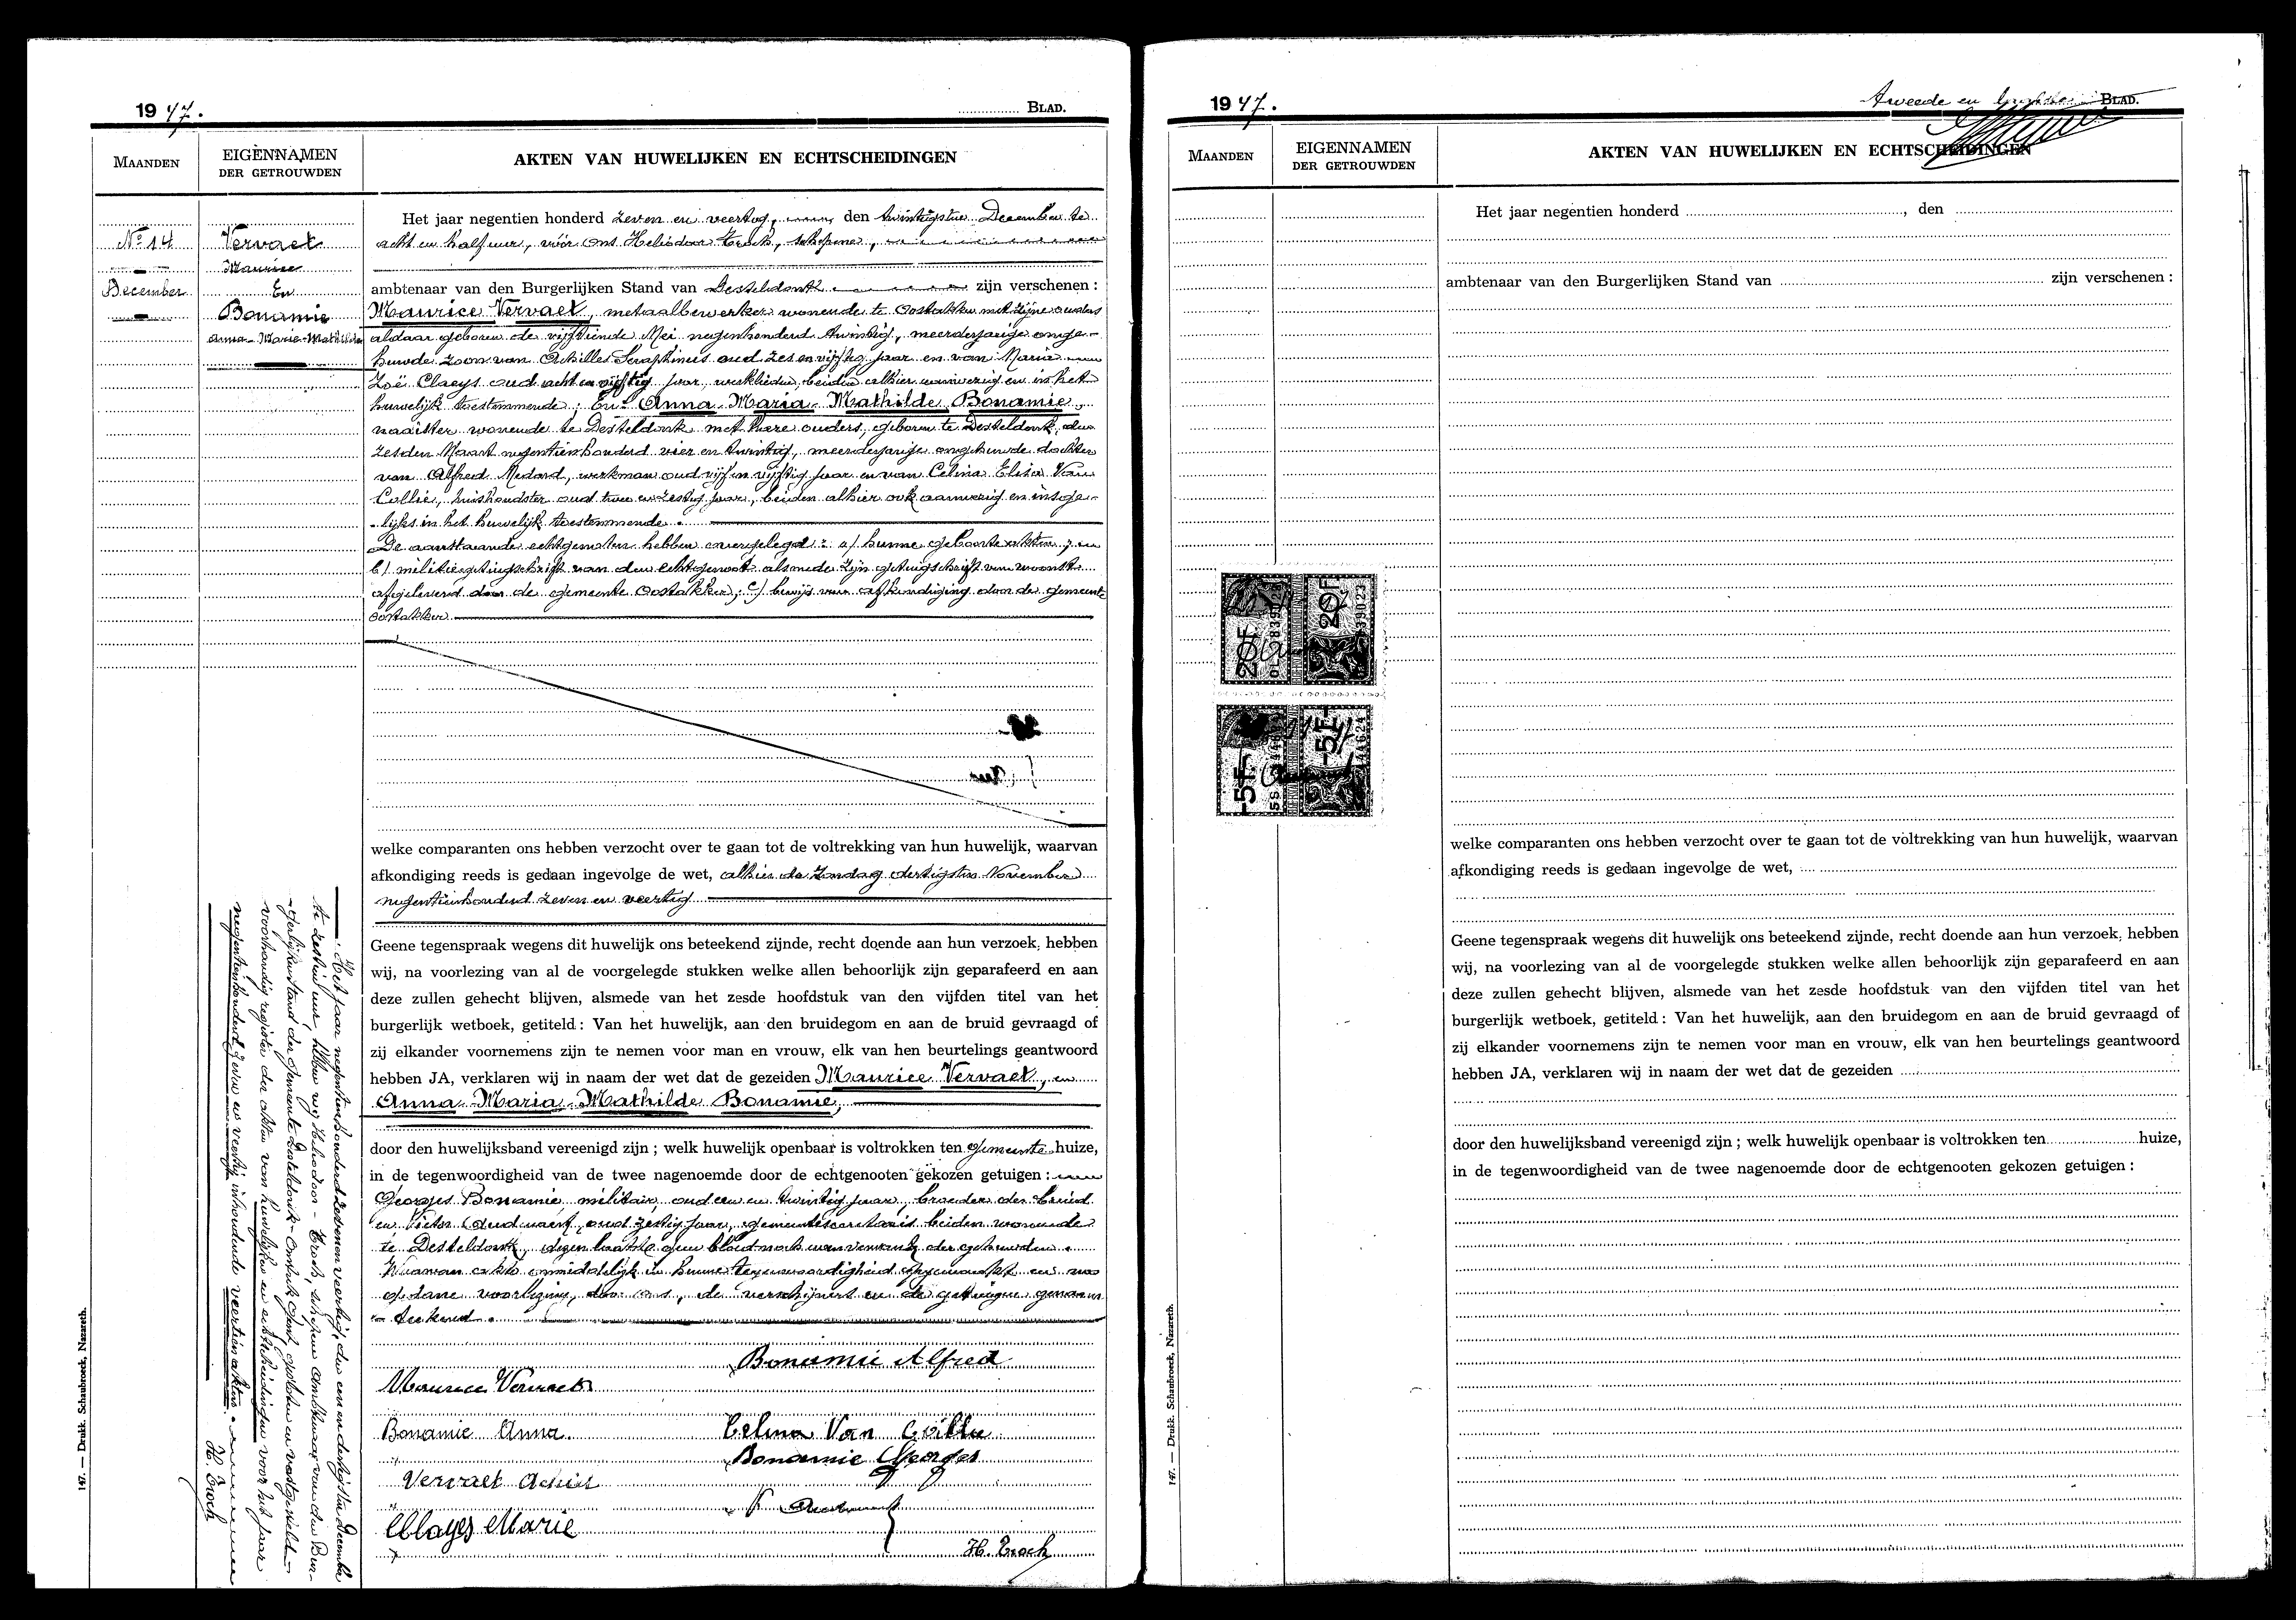 1947.
BLAD.
MAANDEN
EIGENNAMEN
DER GETROUWDEN
AKTEN VAN HUWELIJKEN EN ECHTSCHEIDINGEN
No 14
December
Vervaet
Maurice
En
Bonamie
Anna-Marie-Mathilde
Het jaar negentien honderd zeven en veertig, den twintigsten December te
acht en half uur, vóór ons Heliodoor Eroch, schepene,
ambtenaar van den Burgerlijken Stand van Desteldonk zijn verschenen :
Maurice Vervaet, metaalbewerker wonende te Oostakker met zijne ouders
aldaar geboren de vijftiende Mei negenhonderd twintig, meerderjarige onge-
huwde zoon van Achilles Seraphinus oud zes en vijftig jaar en van Maria
Zoë Claeys oud acht en vijftig jaar, werklieden, beiden alhier aanwezig en in het
huwelijk toestemmende ; En Anna Maria Mathilde Bonamie,
naaister wonende te Desteldonk met hare ouders, geboren te Desteldonk, den
zesden Maart negentienhonderd vier en twintig, meerderjarige ongehuwde dochter
van Alfred Medard, werkman oud vijf en vijftig jaar en van Celina Elisa Van
Collie, huishoudster oud twee en zestig jaar, beiden alhier ook aanwezig en insge-
lijks in het huwelijk toestemmende.
De aanstaande echtgenoten hebben overgelegd : a/ hunne geboorteakten ; en
b/ militiegetuigschrift van den echtgenoot alsmede zijn getuigschrift van woonst
afgeleverd door de gemeente Oostakker ; c/ bewijs van afkondiging door de gemeente
Oostakker
welke comparanten ons hebben verzocht over te gaan tot de voltrekking van hun huwelijk, waarvan
afkondiging reeds is gedaan ingevolge de wet, alhier de Zondag dertigsten November
negentienhonderd zeven en veertig
Geene tegenspraak wegens dit huwelijk ons beteekend zijnde, recht doende aan hun verzoek, hebben
wij, na voorlezing van al de voorgelegde stukken welke allen behoorlijk zijn geparafeerd en aan
deze zullen gehecht blijven, alsmede van het zesde hoofdstuk van den vijfden titel van het
burgerlijk wetboek, getiteld : Van het huwelijk, aan den bruidegom en aan de bruid gevraagd of
zij elkander voornemens zijn te nemen voor man en vrouw, elk van hen beurtelings geantwoord
hebben JA, verklaren wij in naam der wet dat de gezeiden Maurice Vervaet, en
Anna Maria Mathilde Bonamie,
door den huwelijksband vereenigd zijn ; welk huwelijk openbaar is voltrokken ten gemeente huize,
in de tegenwoordigheid van de twee nagenoemde door de echtgenooten gekozen getuigen :
Georges Bonamie militair oud een en twintig jaar, broeder der bruid
en Victor oud zestig jaar, gemeentesecretaris beiden wonende
te Desteldonk, dezen laatste geen bloed noch aanverwant der gehuwden.
Waarvan akte onmiddelijk in hunne tegenwoordigheid opgemaakt en na
gedane voorlezing, door ons, de verschijners en de getuigen genaam-
teekend.
Bonamie Alfred
Maurice Vervaet
Bonamie Anna.
Celina Van Coillie
Bonamie Georges
Vervaet Achiel
Clayes Marie
H. Eroch
Het jaar negentienhonderd zeven en veertig, den een en dertigsten December
te zestien uur, hebben wij Heliodoor Eroch, schepene Ambtenaar van den Bur-
gerlijken stand der Gemeente Desteldonk gesloten en vastgesteld
voorhandig register der akten van huwelijken en echtscheidingen voor het jaar
negentienhonderd zeven en veertig inhoudende veertien akten.
H. Eroch
147. — Drukk. Schaubroeck, Nazareth.
1947.
Tweede en BLAD.
MAANDEN
EIGENNAMEN
DER GETROUWDEN
AKTEN VAN HUWELIJKEN EN ECHTSCHEIDINGEN
Het jaar negentien honderd , den
ambtenaar van den Burgerlijken Stand van zijn verschenen :
20F
20F
5F
5F
welke comparanten ons hebben verzocht over te gaan tot de voltrekking van hun huwelijk, waarvan
afkondiging reeds is gedaan ingevolge de wet,
Geene tegenspraak wegens dit huwelijk ons beteekend zijnde, recht doende aan hun verzoek, hebben
wij, na voorlezing van al de voorgelegde stukken welke allen behoorlijk zijn geparafeerd en aan
deze zullen gehecht blijven, alsmede van het zesde hoofdstuk van den vijfden titel van het
burgerlijk wetboek, getiteld : Van het huwelijk, aan den bruidegom en aan de bruid gevraagd of
zij elkander voornemens zijn te nemen voor man en vrouw, elk van hen beurtelings geantwoord
hebben JA, verklaren wij in naam der wet dat de gezeiden
door den huwelijksband vereenigd zijn ; welk huwelijk openbaar is voltrokken ten huize,
in de tegenwoordigheid van de twee nagenoemde door de echtgenooten gekozen getuigen :
147. — Drukk. Schaubroeck, Nazareth.